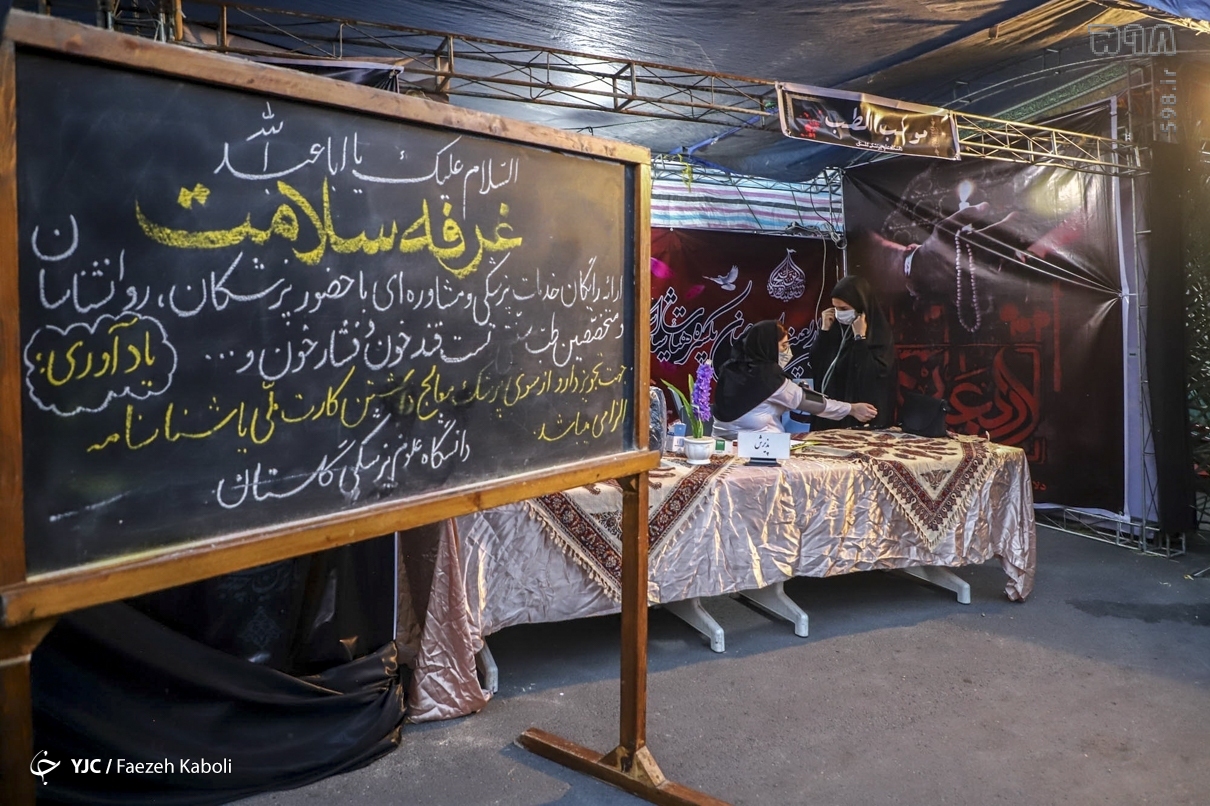 السّلام علیک یا اباعبدالله
غرفه سلامت
ارائه رایگان خدمات پزشکی و مشاوره ای با حضور پزشکان، روانشناسان
و متخصّصین طب
تست قند خون و فشار خون و...
یادآوری:
جهت تجویز دارو از سوی پزشک معالج داشتن کارت ملّی یا شناسنامه
الزامی میباشد.
دانشگاه علوم پزشکی گلستان
موکب الطب
پذیرش
598.ir
YJC / Faezeh Kaboli